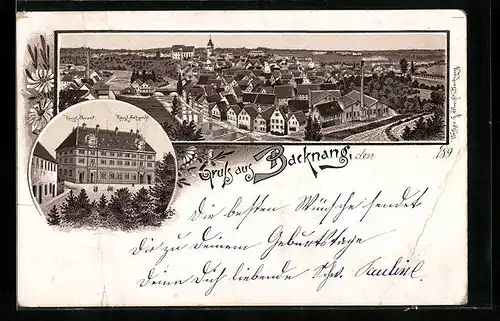 Kgl. Oberamt. Kgl. Amtsgericht
Gruß aus Backnang, den 189
Die besten Wünsche sendet
Dir zu Deinem Geburtstage
Deine Dich liebende Schw. Pauline.